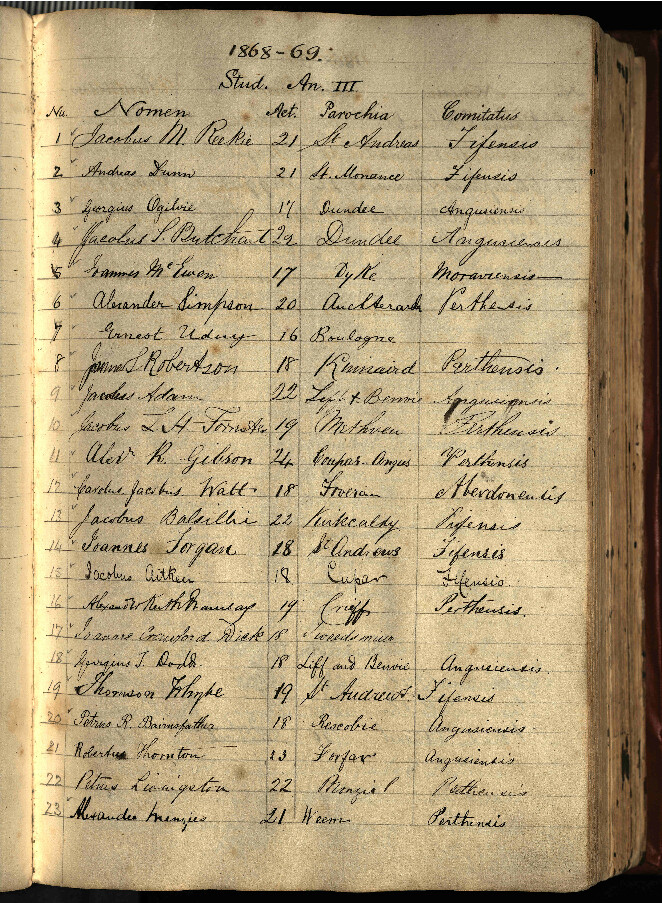 1868-69.
Stud. An. III
No. Nomen Aet. Parochia Comitatus
1 Jacobus M. Reekie 21 St Andreas Fifensis
2 Andreas Dunn 21 St. Monance Fifensis
3 Georgius Ogilvie 17 Dundee Angusiensis
4 Jacobus S. Butchart 22 Dundee Angusiensis
5 Ioannes McEwen 17 Dyke Moraviensis
6 Alexander Simpson 20 Auchterarder Perthensis
7 Ernest Udny 16 Boulogne
8 James S. Robertson 18 Kinnaird Perthensis.
9 Jacobus Adam 22 Liff & Benvie Angusiensis
10 Jacobus L H 19 Methven Perthensis
11 Alexr R. Gibson 24 Coupar-Angus Perthensis
12 Carolus Jacobus Watt 18 Foveran Aberdonensis
13 Jacobus Balsillie 22 Kirkcaldy Fifensis
14 Ioannes Jorgan 28 St Andrews Fifensis
15 Iacobus Aitken 18 Cupar Fifensis
16 Alexander Keith Ramsay 19 Crieff Perthensis.
17 Ioannes Crawford Dick 18 Tweedsmuir
18 Georgius T. Dodd 18 Liff and Benvie Angusiensis
19 Thomson Whyte 19 St Andrews. Fifensis
20 Petrus R. Bairnsfather 18 Rescobie Angusiensis
21 Robertus Thornton 23 Forfar Angusiensis
22 Petrus Livingston 22 Perthensis
23 Alexander Menzies 21 Weem Perthensis